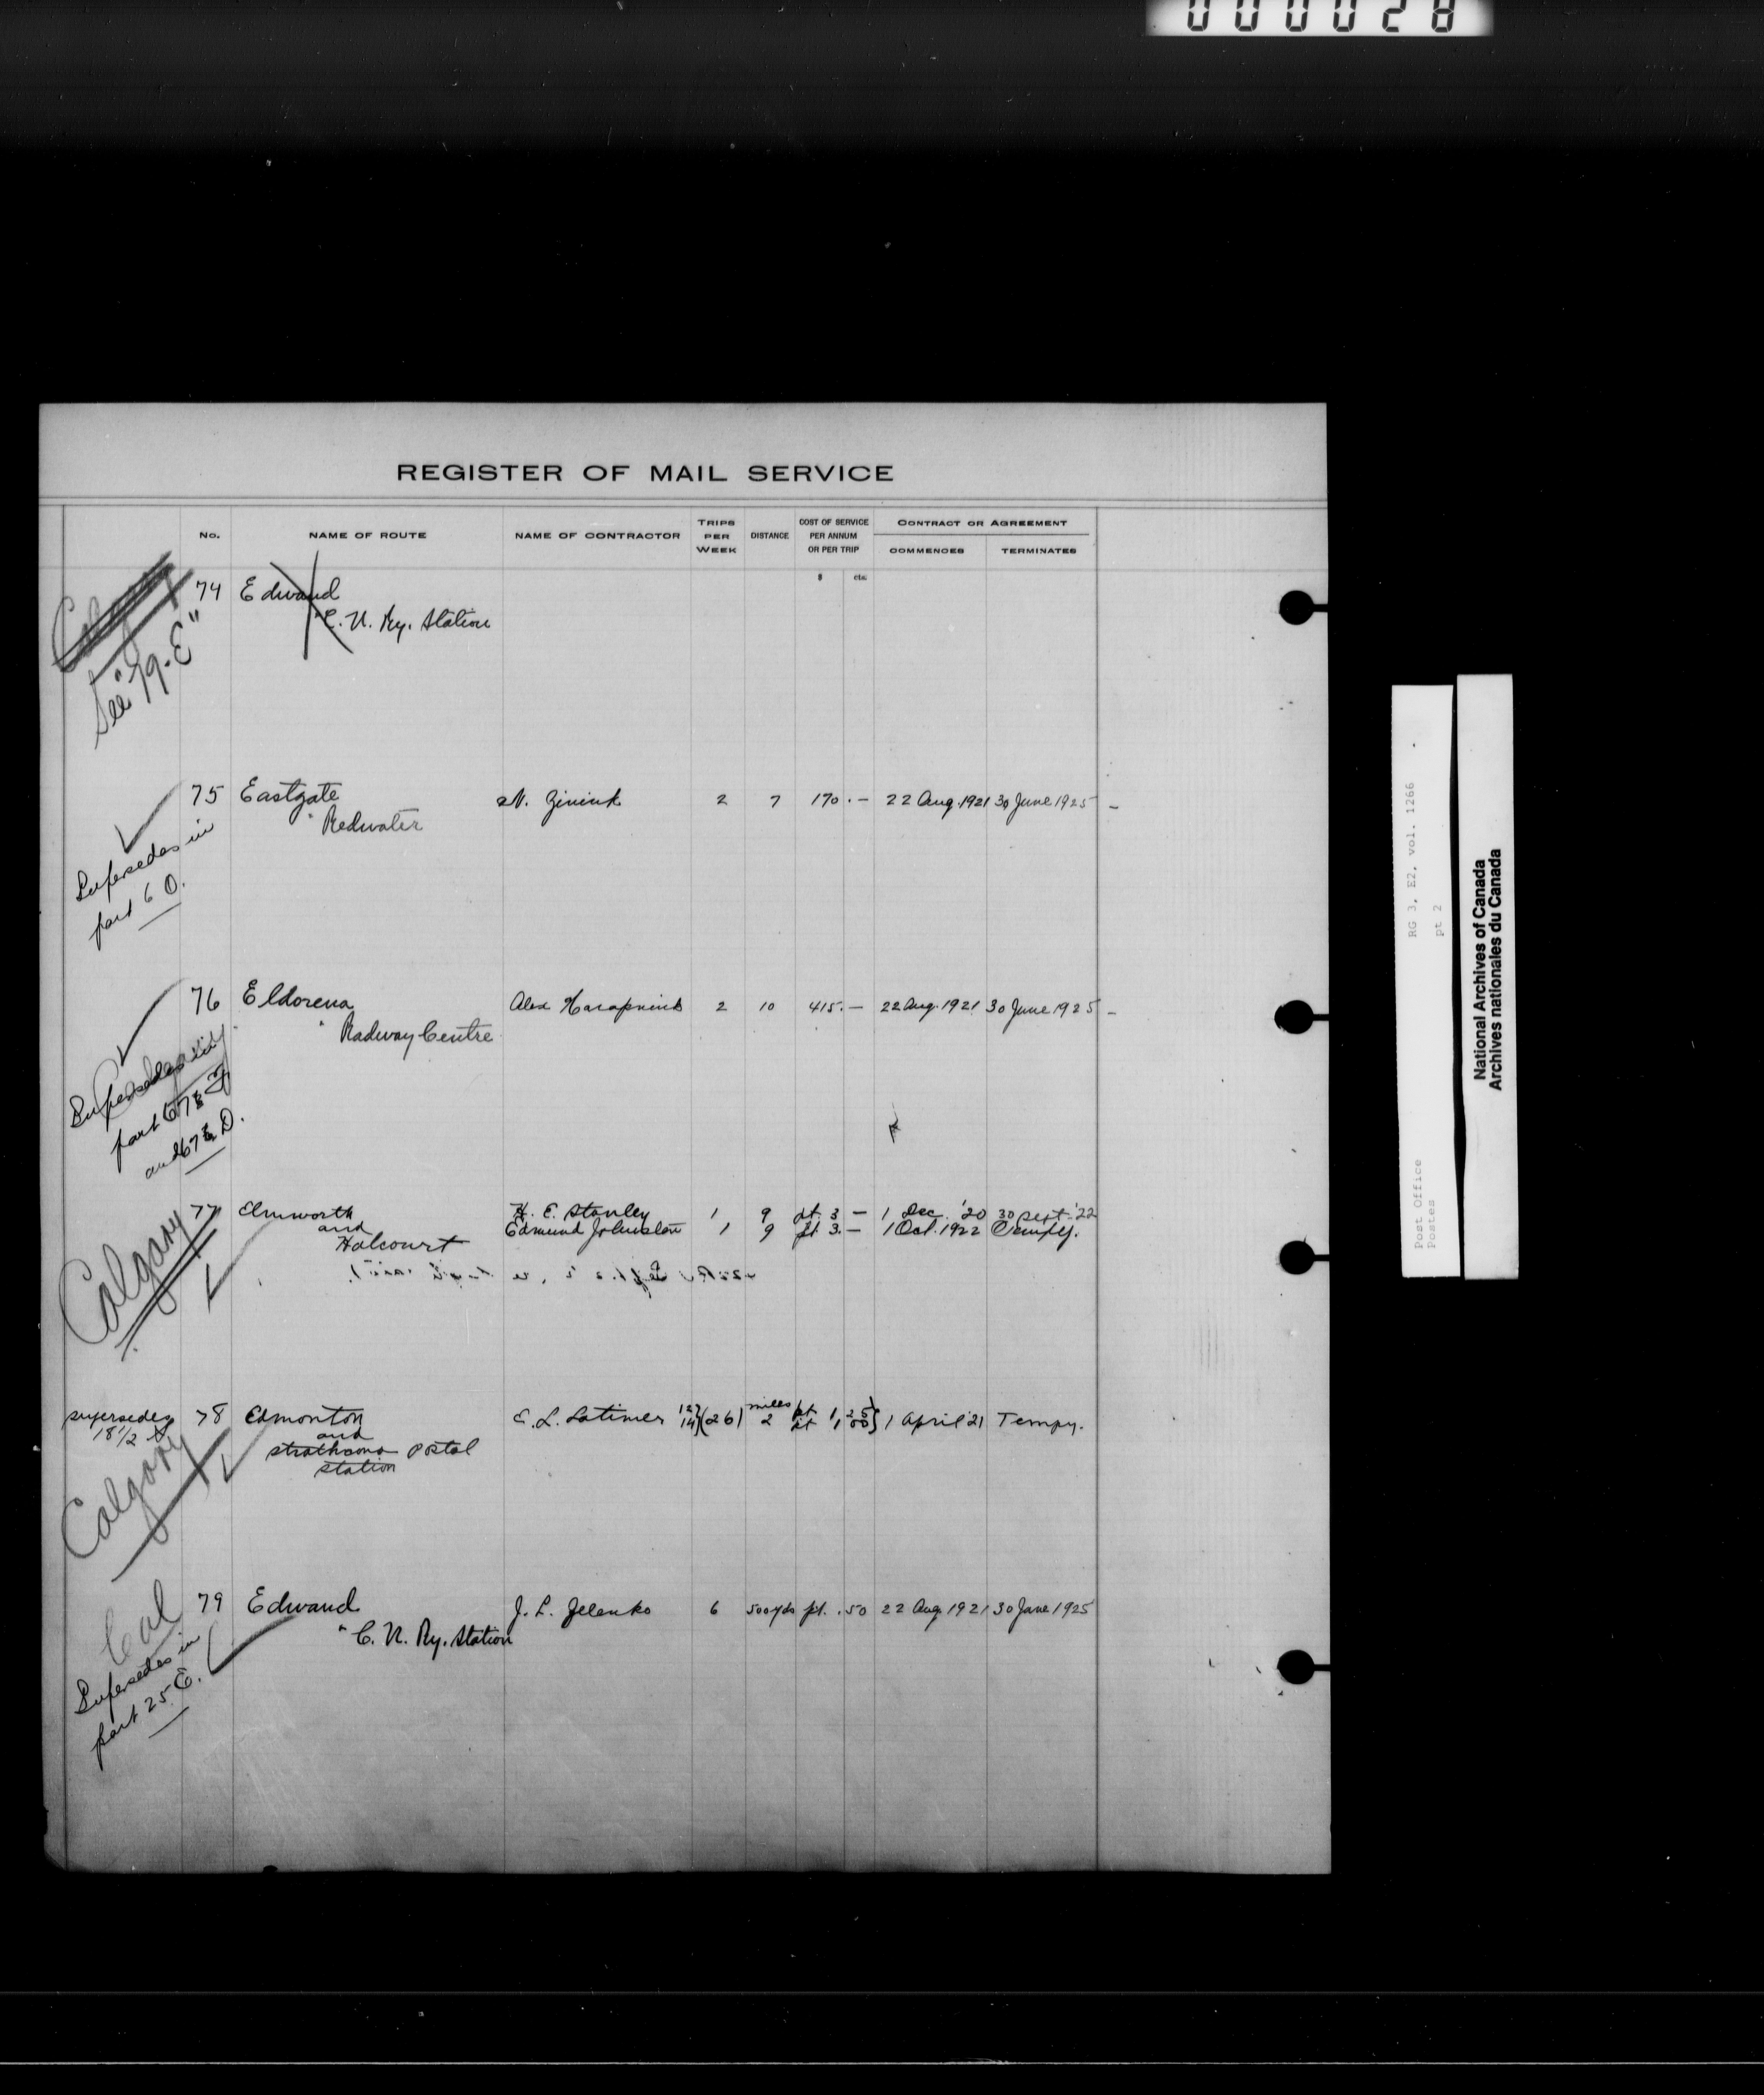 000028
REGISTER OF MAIL SERVICE
No. NAME OF ROUTE NAME OF CONTRACTOR TRIPS PER WEEK DISTANCE COST OF SERVICE PER ANNUM OR PER TRIP CONTRACT OR AGREEMENT COMMENCES TERMINATES
$ cts.
74 Edwand
" C. N. Ry. Station
See "79-E"
75 Eastgate N. Zinink 2 7 170.- 22 Aug. 1921 30 June 1925 -
" Redwater
Supersedes in
part 6 O.
76 Eldorena Alex 2 10 415.- 22 Aug. 1921 30 June 1925 -
" Radway Centre
Supersedes in
part
and D.
77 Elmworth H. E. Stanley 1 9 pt. 3 - 1 Dec. '20 30 Sept. '22
and Edmund Johnston 1 9 pt. 3.- 1 Oct. 1922 Tempy.
Halcourt
Calgary
supersedes 78 Edmonton E. L. Latimer 12 14 (26) miles 2 pt. 1,25 pt 1,00 1 April '21 Tempy.
18½
and
Strathcona Postal
Station
Calgary
79 Edwand J. L. Jelenko 6 500 yds pt. .50 22 Aug. 1921 30 June 1925
" C. N. Ry. Station
Cal
Supersedes in
part 25 E.
RG 3, E2, vol. 1266
pt 2
Post Office
Postes
National Archives of Canada
Archives nationales du Canada